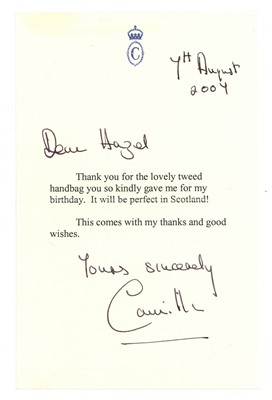 C
7th August
2007
Dear Hazel
Thank you for the lovely tweed
handbag you so kindly gave me for my
birthday. It will be perfect in Scotland!
This comes with my thanks and good
wishes.
Yours sincerely
Camilla